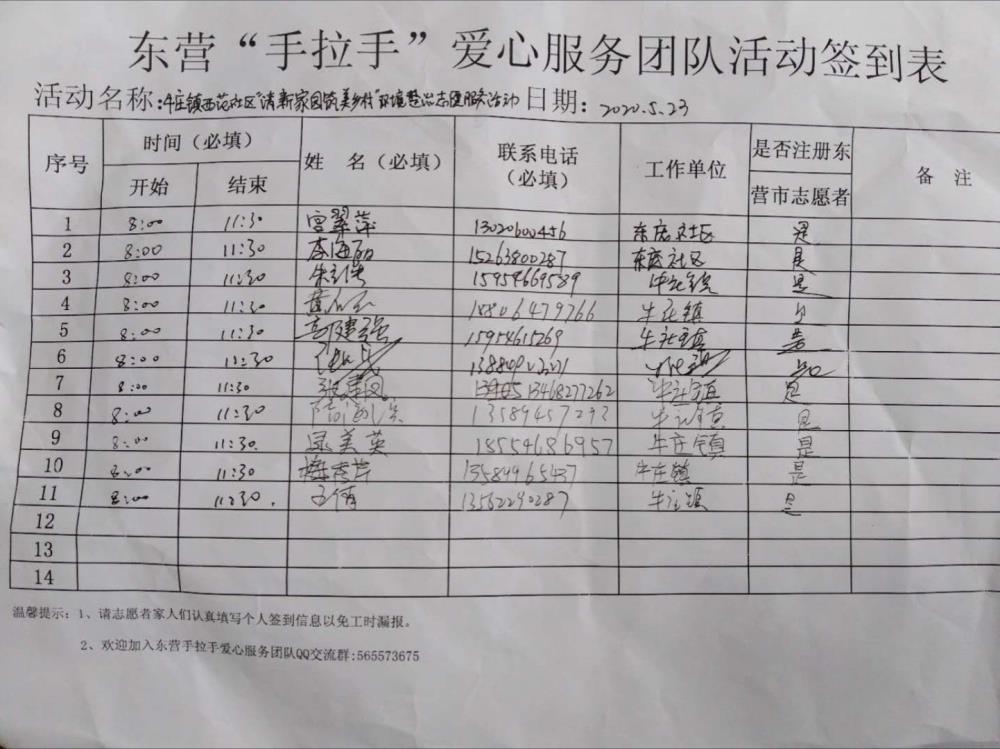 东营“手拉手”爱心服务团队活动签到表
活动名称:牛庄镇西范社区“清新家园筑美乡村”环境整治志愿服务活动 日期: 2020.5.23
序号 时间（必填） 姓 名（必填） 联系电话（必填） 工作单位 是否注册东营市志愿者 备 注
开始 结束
1 8:00 11:30 宫翠萍 13020600456 东庞社区 是
2 8:00 11:30 李海丽 15263800287 东庞社区 是
3 8:00 11:30 15954669589 牛庄镇 是
4 8:00 11:30 18806479766 牛庄镇 是
5 8:00 11:30 高建强 15954615269 牛庄镇 是
6 8:00 11:30 是
7 8:00 11:30 张建凤 13468277262 牛庄镇 是
8 8:00 11:30 13589457292 牛庄镇 是
9 8:00 11:30. 美英 18554686957 牛庄镇 是
10 8:00 11:30 13589965437 牛庄镇 是
11 8:00 11:30. 王倩 13562290287 牛庄镇 是
12
13
14
温馨提示: 1、请志愿者家人们认真填写个人签到信息以免工时漏报。
2、欢迎加入东营手拉手爱心服务团队QQ交流群:565573675